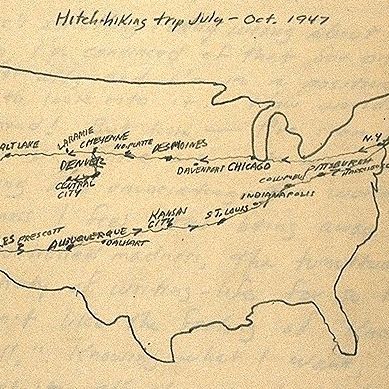 Hitch-hiking trip July - Oct. 1947
N.Y.
SALT LAKE
LARAMIE
CHEYENNE
NO. PLATTE
DES MOINES
DAVENPORT
CHICAGO
PITTSBURGH
DENVER
CENTRAL
CITY
COLUMBUS
INDIANAPOLIS
PRESCOTT
ALBUQUERQUE
DALHART
KANSAS
CITY
ST. LOUIS